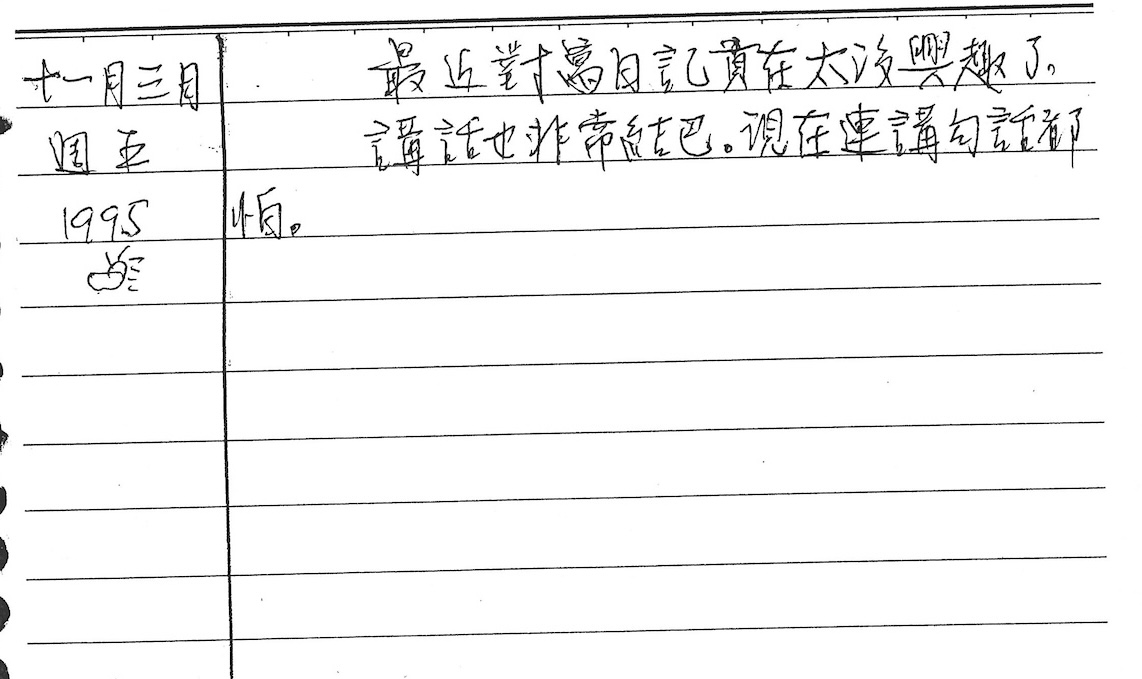 十一月三日 最近對寫日記實在太沒興趣了。
週五 講話也非常結巴。現在連講句話都
1995 怕。